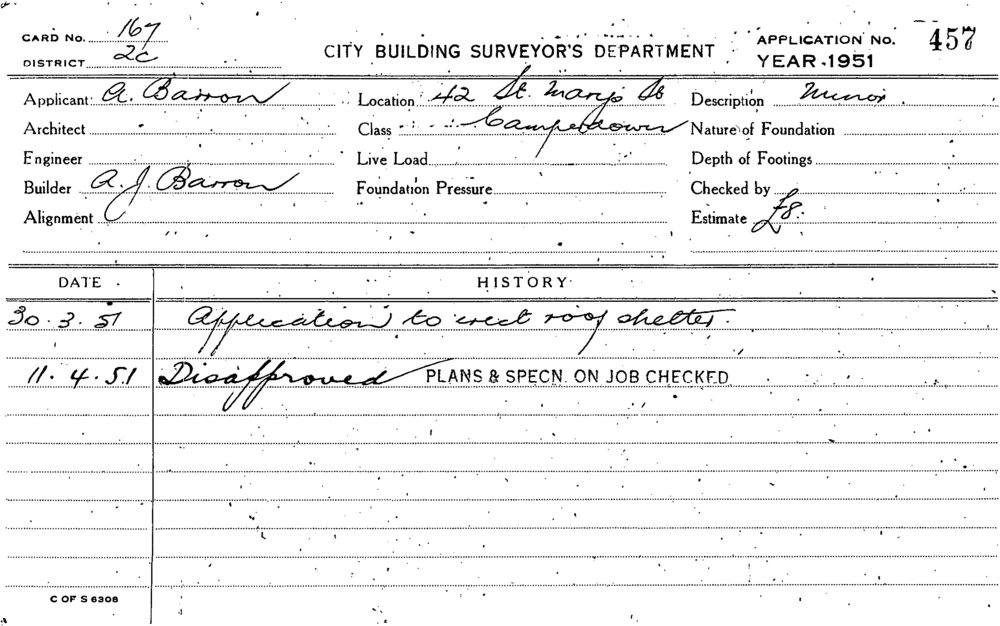 CARD No. 167
DISTRICT 2C
CITY BUILDING SURVEYOR'S DEPARTMENT
APPLICATION No. 457
YEAR 1951
Applicant A. Barron Location 42 St. Marys St Description Minor
Architect Class Camperdown Nature of Foundation
Engineer Live Load Depth of Footings
Builder A. J. Barron Foundation Pressure Checked by
Alignment Estimate £8.
DATE HISTORY
30.3.51 Application to erect roof shelter.
11.4.51 Disapproved PLANS & SPECN. ON JOB CHECKED
C OF S 6306